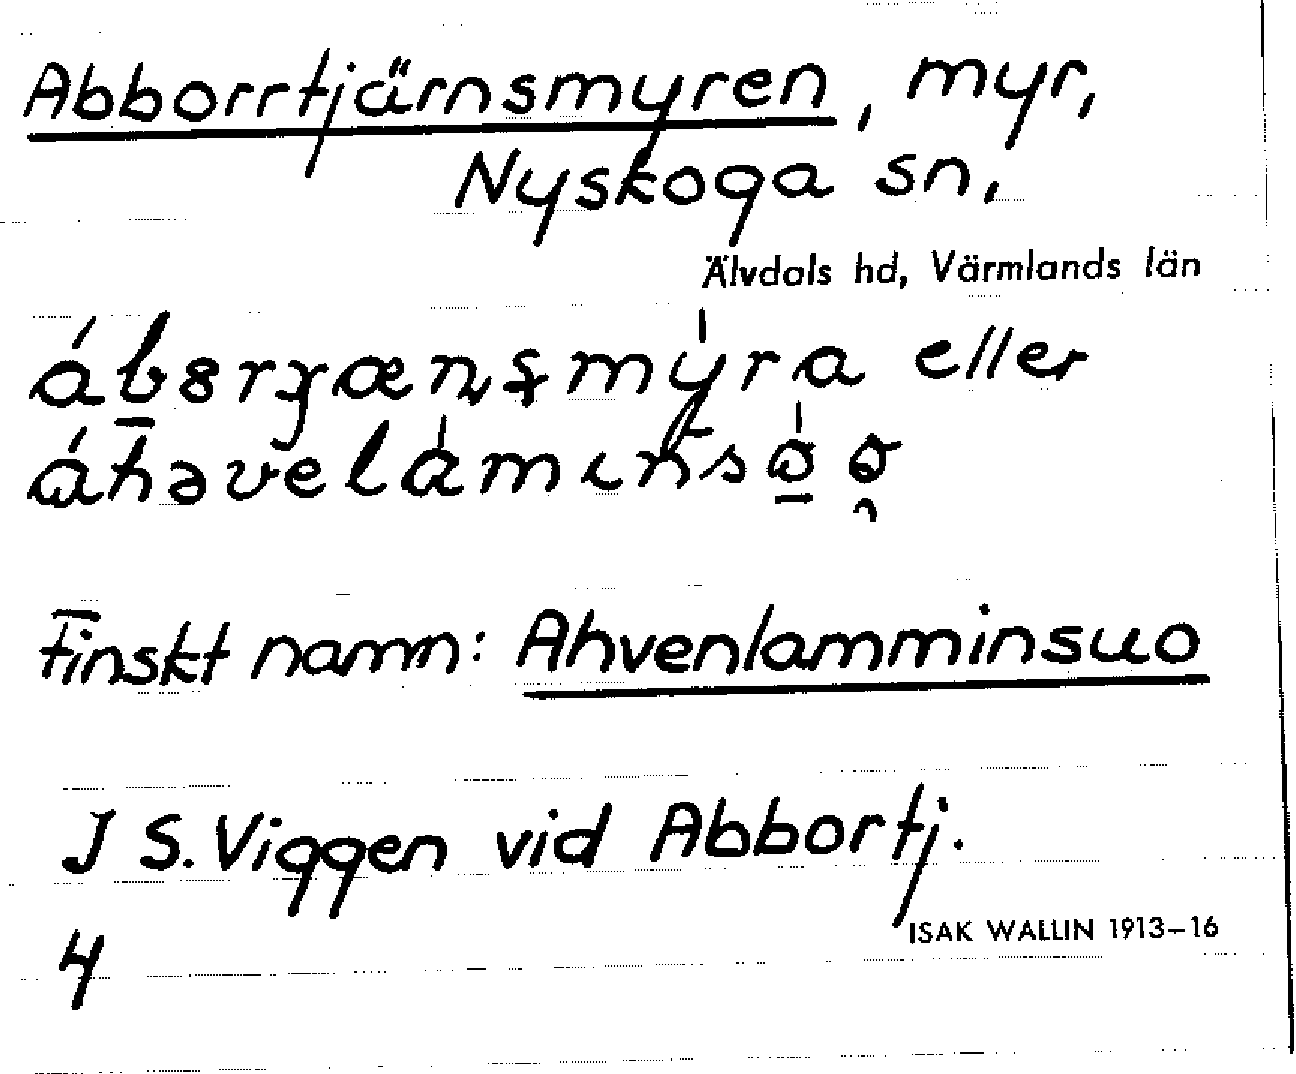 Abborrtjärnsmyren, myr,
Nyskoga sn.
Älvdals hd, Värmlands län
eller
Finskt namn: Ahvenlamminsuo
J S. Viggen vid Abbortj.
4
ISAK WALLIN 1913–16